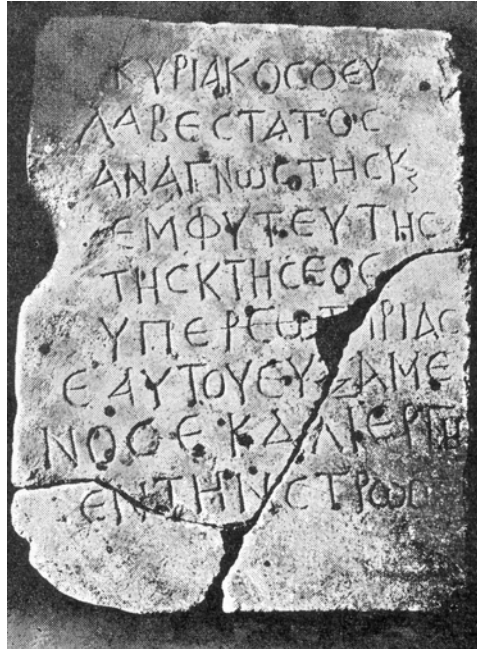 ΚΥΡΙΑΚΟCΟΕΥ
ΛΑΒΕCΤΑΤΟC
ΑΝΑΓΝωCΤΗCΚς
ΕΜΦΥΤΕΥΤΗC
ΤΗCΚΤΗCΕΟC
ΥΠΕΡCωΤΗΡΙΑC
ΕΑΥΤΟΥΕΥΞΑΜΕ
ΝΟCΕΚΑΛΙΕΡΓΗ
CΕΝΤΗΝCΤΡωC